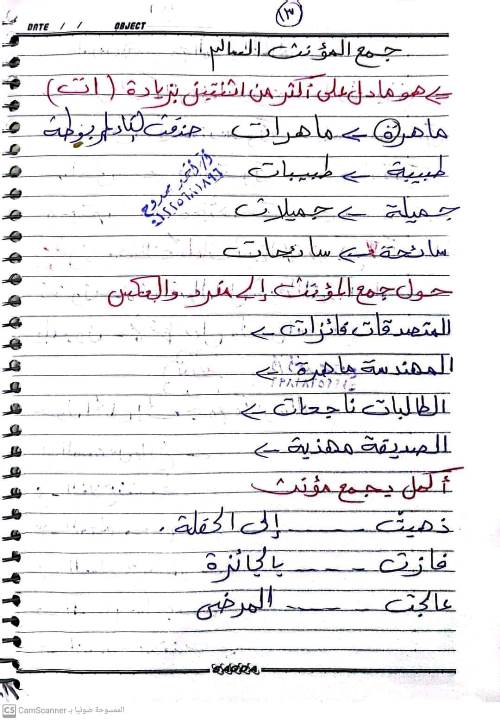 ١٣
DATE / / OBJECT
جمع المؤنث السالم
هو ما دل على أكثر من اثنتين بزيادة (ات)
ماهرة ← ماهرات حذفت التاء المربوطة
طبيبة ← طبيبات
جميلة ← جميلات
سائحة ← سائحات
حول جمع المؤنث إلى مفرد والعكس
المتصدقات فائزات ←
المهندسة ماهرة ←
الطالبات ناجحات ←
الصديقة مهذبة ←
أكمل بجمع مؤنث
ذهبت ---- إلى الحفلة .
فازت ---- بالجائزة
عالجت ---- المرضى
CS CamScanner الممسوحة ضوئيا بـ